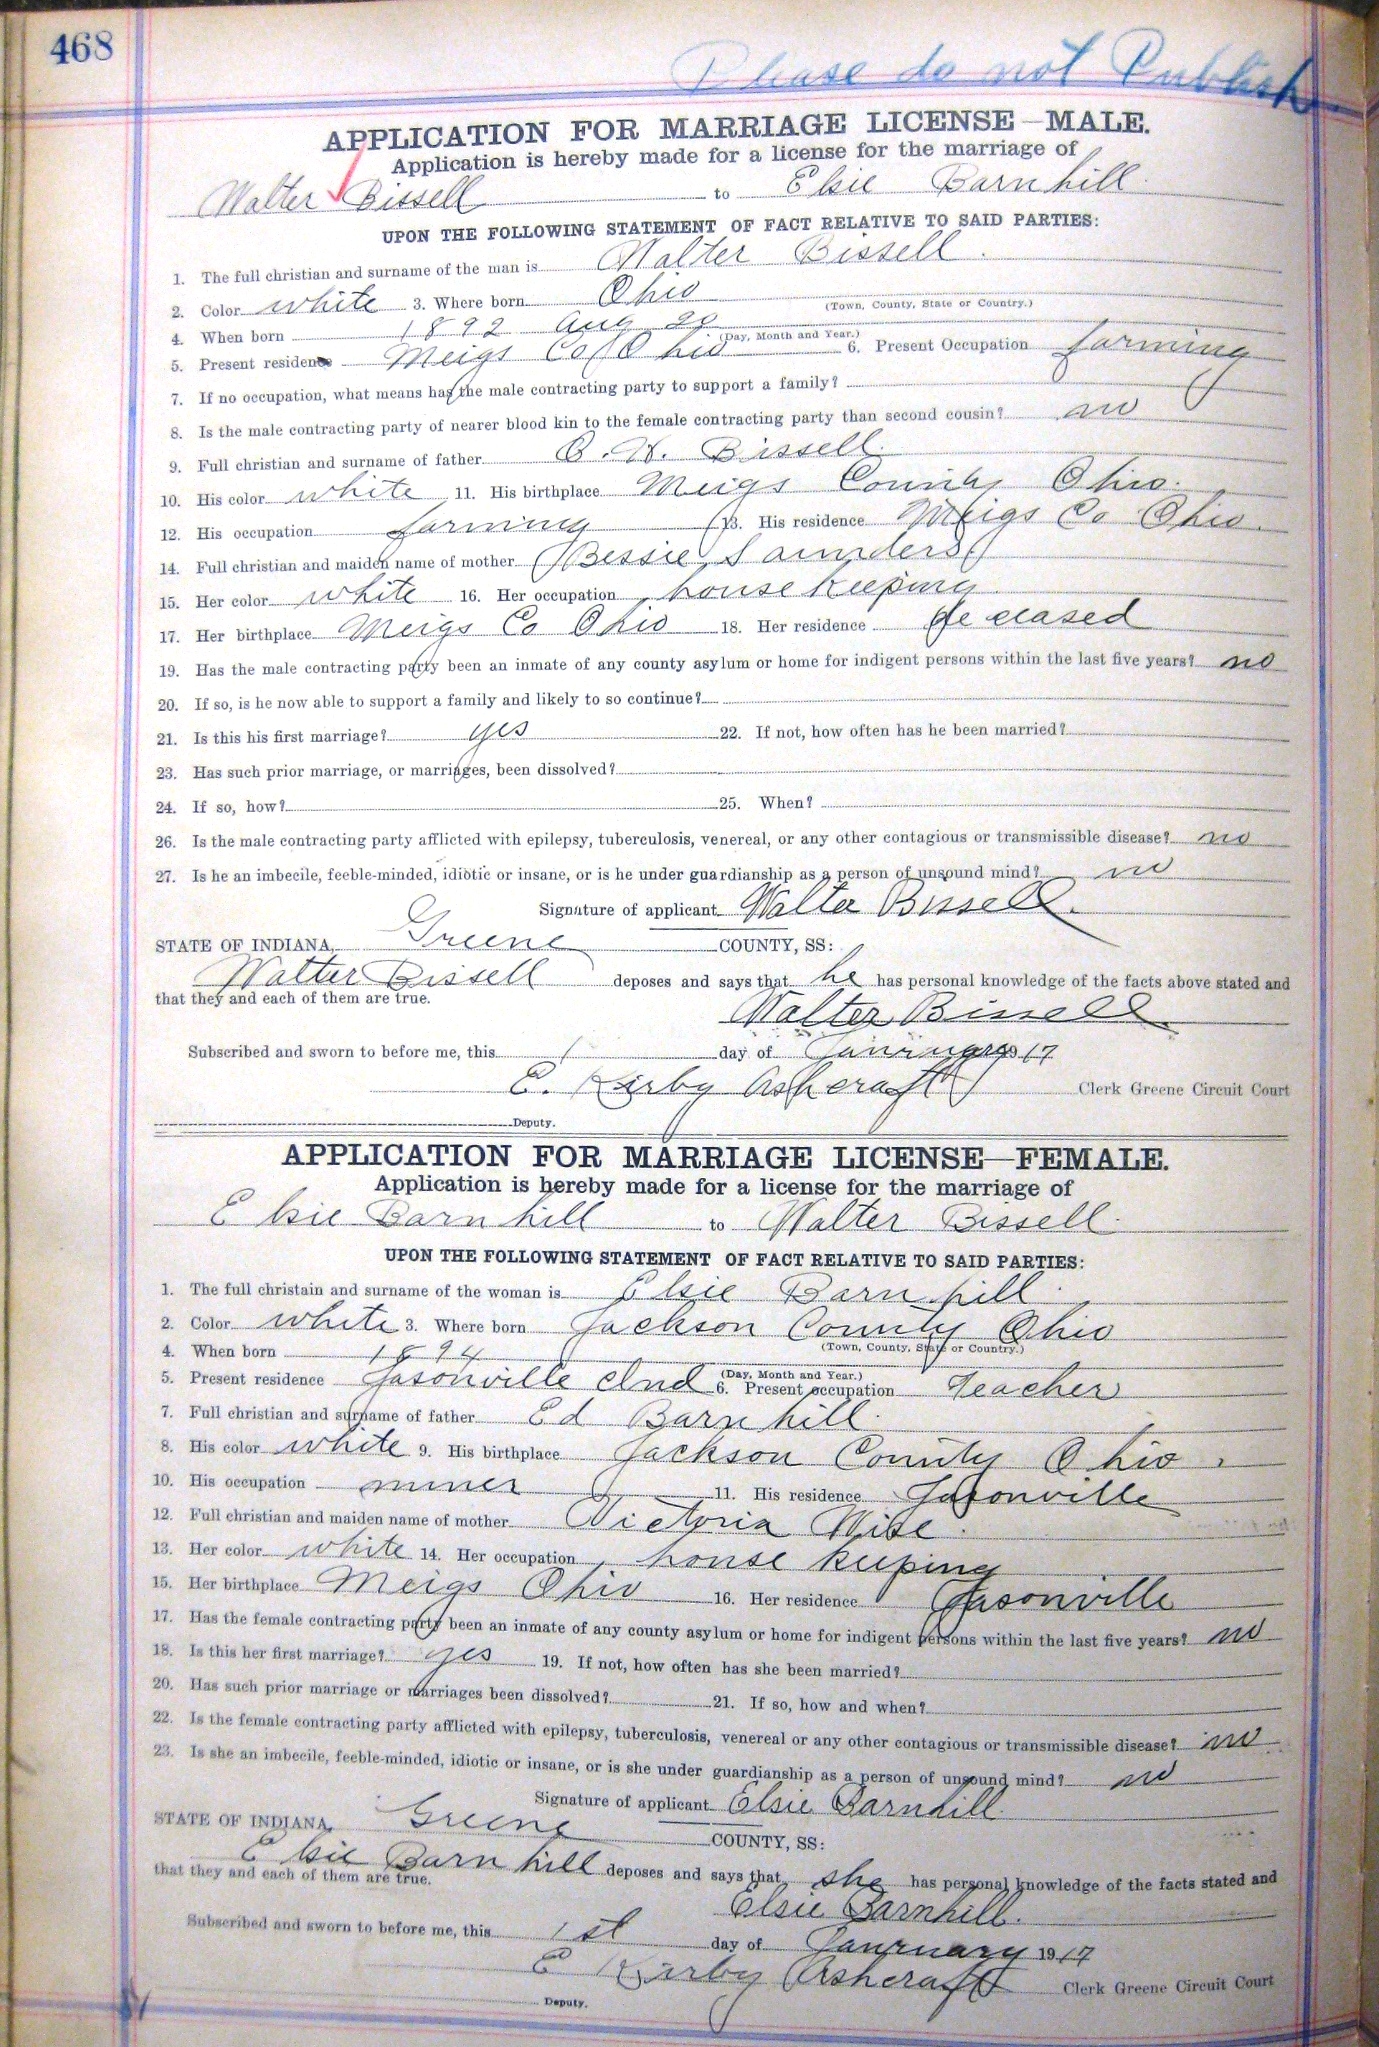 468
Please do not Publish
APPLICATION FOR MARRIAGE LICENSE—MALE.
Application is hereby made for a license for the marriage of
Walter Bissell to Elsie Barnhill
UPON THE FOLLOWING STATEMENT OF FACT RELATIVE TO SAID PARTIES:
1. The full christian and surname of the man is Walter Bissell.
2. Color white 3. Where born Ohio
(Town, County, State or Country.)
4. When born 1892 Aug 20
(Day, Month and Year.)
5. Present residence Meigs Co Ohio 6. Present Occupation farming
7. If no occupation, what means has the male contracting party to support a family?
8. Is the male contracting party of nearer blood kin to the female contracting party than second cousin? no
9. Full christian and surname of father Bissell
10. His color white 11. His birthplace Meigs County Ohio.
12. His occupation farming 13. His residence Meigs Co Ohio.
14. Full christian and maiden name of mother Bessie Saunders
15. Her color white 16. Her occupation house keeping
17. Her birthplace Meigs Co Ohio 18. Her residence deceased
19. Has the male contracting party been an inmate of any county asylum or home for indigent persons within the last five years? no
20. If so, is he now able to support a family and likely to so continue?
21. Is this his first marriage? yes 22. If not, how often has he been married?
23. Has such prior marriage, or marriages, been dissolved?
24. If so, how? 25. When?
26. Is the male contracting party afflicted with epilepsy, tuberculosis, venereal, or any other contagious or transmissible disease? no
27. Is he an imbecile, feeble-minded, idiotic or insane, or is he under guardianship as a person of unsound mind? no
Signature of applicant Walter Bissell.
STATE OF INDIANA, Greene COUNTY, SS:
Walter Bissell deposes and says that he has personal knowledge of the facts above stated and
that they and each of them are true.
Walter Bissell.
Subscribed and sworn to before me, this 1 day of 17
E. Kirby Ashcraft Clerk Greene Circuit Court
Deputy.
APPLICATION FOR MARRIAGE LICENSE—FEMALE.
Application is hereby made for a license for the marriage of
Elsie Barnhill to Walter Bissell.
UPON THE FOLLOWING STATEMENT OF FACT RELATIVE TO SAID PARTIES:
1. The full christain and surname of the woman is Elsie Barnhill.
2. Color white 3. Where born Jackson County Ohio
(Town, County, State or Country.)
4. When born 1894
(Day, Month and Year.)
5. Present residence Jasonville Ind 6. Present occupation Teacher
7. Full christian and surname of father Ed Barnhill.
8. His color white 9. His birthplace Jackson County Ohio.
10. His occupation miner 11. His residence Jasonville
12. Full christian and maiden name of mother Victoria Wise.
13. Her color white 14. Her occupation house keeping
15. Her birthplace Meigs Ohio 16. Her residence Jasonville
17. Has the female contracting party been an inmate of any county asylum or home for indigent persons within the last five years? no
18. Is this her first marriage? yes 19. If not, how often has she been married?
20. Has such prior marriage or marriages been dissolved? 21. If so, how and when?
22. Is the female contracting party afflicted with epilepsy, tuberculosis, venereal or any other contagious or transmissible disease? no
23. Is she an imbecile, feeble-minded, idiotic or insane, or is she under guardianship as a person of unsound mind? no
Signature of applicant Elsie Barnhill
STATE OF INDIANA, Greene COUNTY, SS:
Elsie Barnhill deposes and says that she has personal knowledge of the facts stated and
that they and each of them are true.
Elsie Barnhill.
Subscribed and sworn to before me, this 1st day of Janruary 1917
E Kirby Ashcraft Clerk Greene Circuit Court
Deputy.